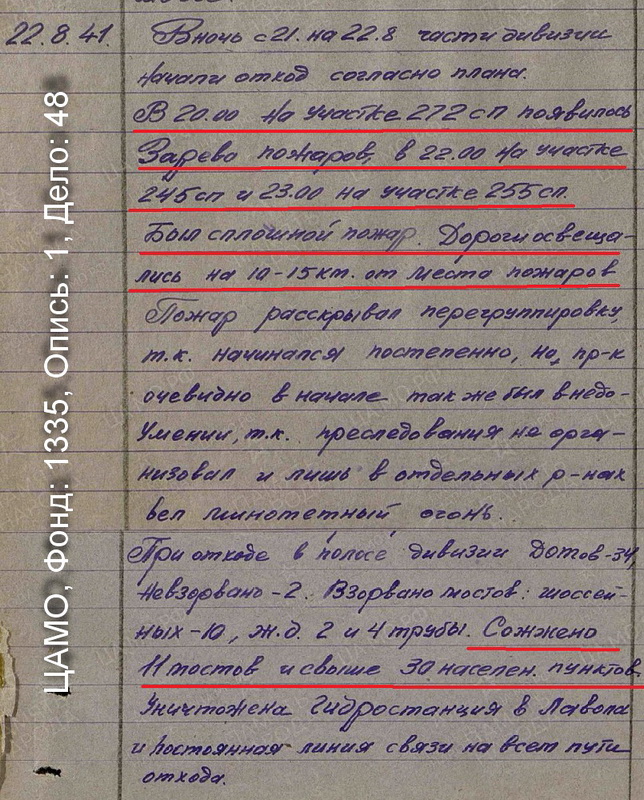 22.8.41. В ночь с 21. на 22.8 части дивизии
начали отход согласно плана.
В 20.00 на участке 272 сп появилось
Зарево пожаров, в 22.00 на участке
245 сп и 23.00 на участке 255 сп.
Был сплошной пожар. Дороги освеща-
лись на 10-15 км. от места пожаров
Пожар расскрывал перегруппировку,
т.к. начинался постепенно, но, пр-к
очевидно в начале так же был в недо-
умении, т.к. преследования не орга-
низовал и лишь в отдельных р-нах
вел минометный огонь.
При отходе в полосе дивизии Дотов-34,
Невзорвано-2. Взорвано мостов: шоссей-
ных-10, ж.д. 2 и 4 трубы. Сожжено
11 мостов и свыше 30 населен. пунктов.
Уничтожена Гидростанция в Лавола
и постоянная линия связи на всем пути
отхода.
ЦАМО, Фонд: 1335, Опись: 1, Дело: 48